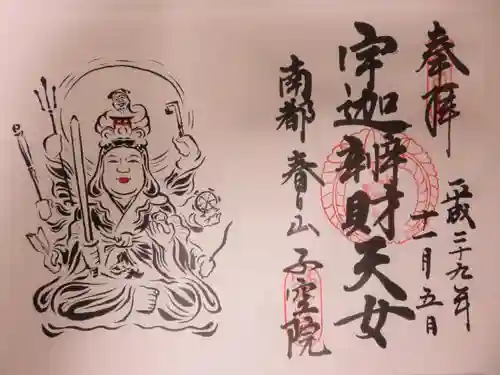 奉拝
平成二十九年
十一月五日
宇迦辨財天女
南都春日山不空院